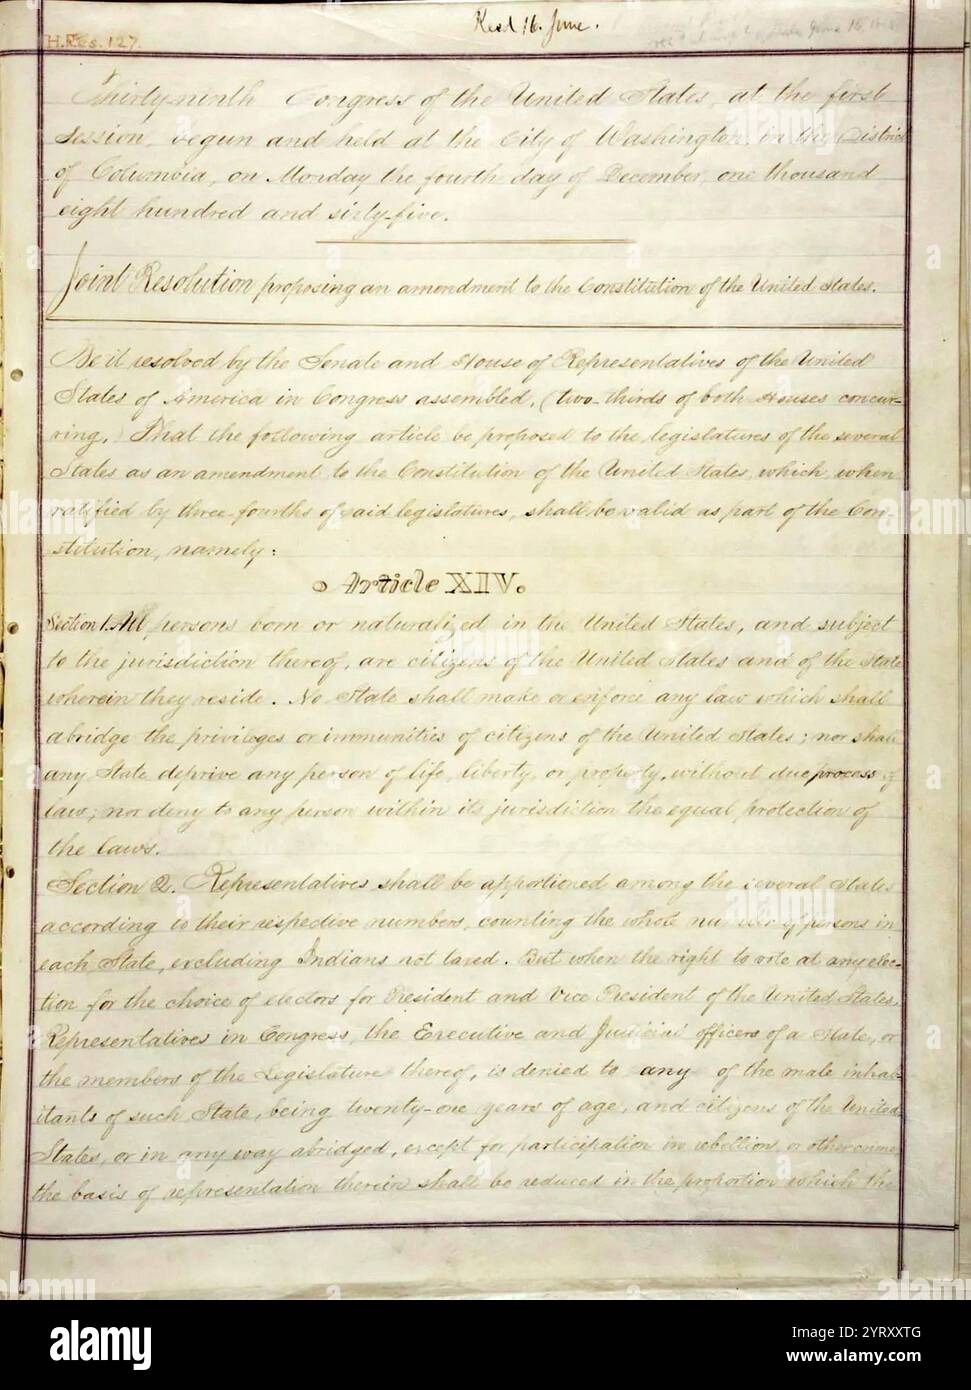 Recd 16. June.
H.Res. 127.
Thirty-ninth Congress of the United States, at the first
Session, begun and held at the City of Washington, in the District
of Columbia, on Monday the fourth day of December, one thousand
eight hundred and sixty-five.
Joint Resolution proposing an amendment to the Constitution of the United States.
Be it resolved by the Senate and House of Representatives of the United
States of America in Congress assembled, (two-thirds of both Houses concur-
ring,) That the following article be proposed to the legislatures of the several
States as an amendment to the Constitution of the United States, which, when
ratified by three-fourths of said legislatures, shall be valid as part of the Con-
stitution, namely:
Article XIV.
Section 1. All persons born or naturalized in the United States, and subject
to the jurisdiction thereof, are citizens of the United States and of the State
wherein they reside. No State shall make or enforce any law which shall
abridge the privileges or immunities of citizens of the United States; nor shall
any State deprive any person of life, liberty, or property, without due process of
law; nor deny to any person within its jurisdiction the equal protection of
the laws.
Section 2. Representatives shall be apportioned among the several States
according to their respective numbers, counting the whole number of persons in
each State, excluding Indians not taxed. But when the right to vote at any elec-
tion for the choice of electors for President and Vice President of the United States,
Representatives in Congress, the Executive and Judicial officers of a State, or
the members of the Legislature thereof, is denied to any of the male inhab-
itants of such State, being twenty-one years of age, and citizens of the United
States, or in any way abridged, except for participation in rebellion, or other crime,
the basis of representation therein shall be reduced in the proportion which the
alamy
Image ID: 2YRXXTG
www.alamy.com